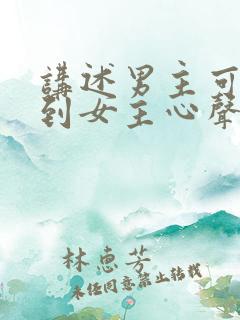 講述男主可
到女主心聲
林惠芳
未經同意禁止轉載